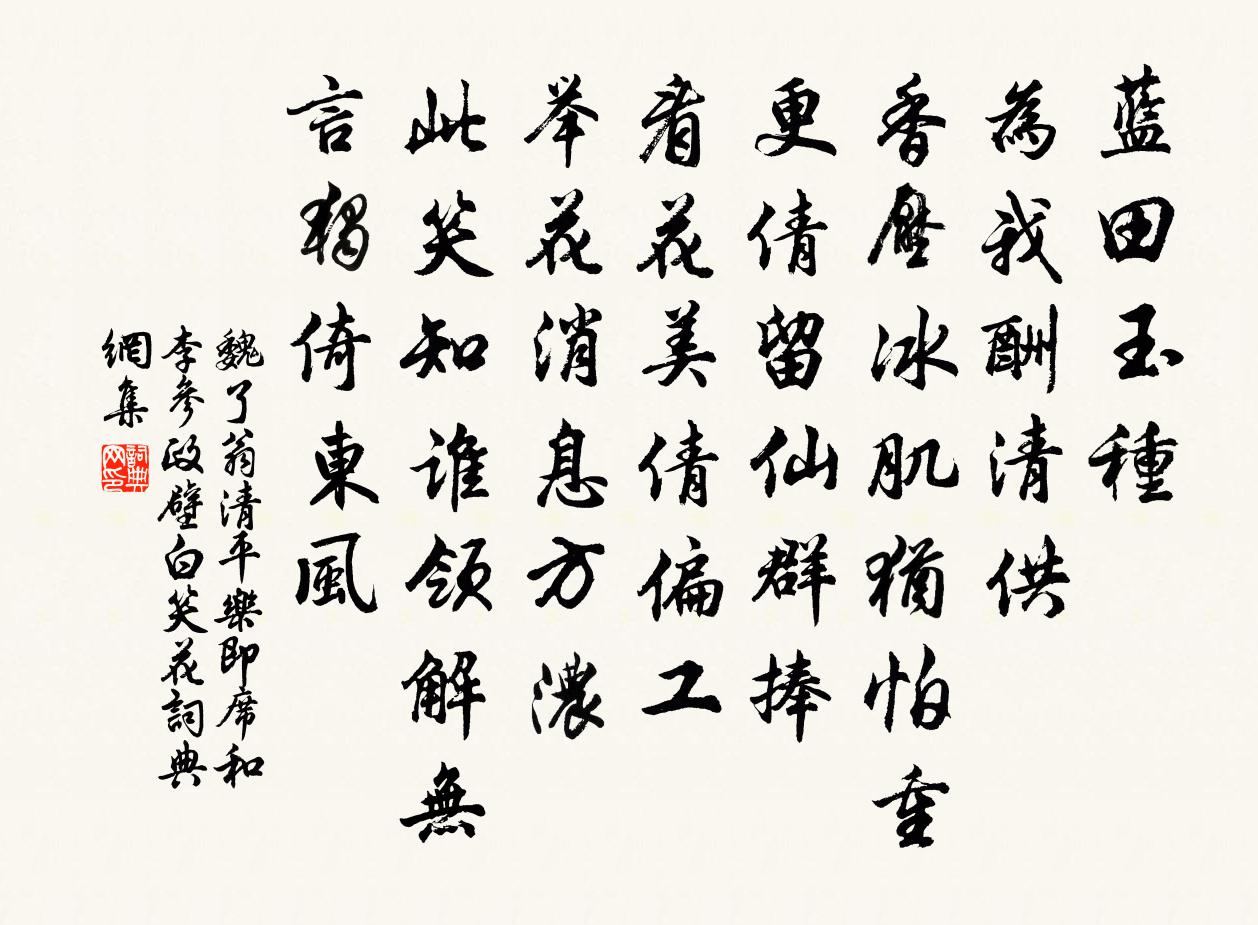 藍田玉種
為我酬清供
香壓冰肌猶怕重
更倩留仙群捧
看花美倩偏工
举花消息方濃
此笑知谁領解無
言獨倚東風
魏了翁清平樂即席和
李參政壁白笑花詞典
網集
詞典网印